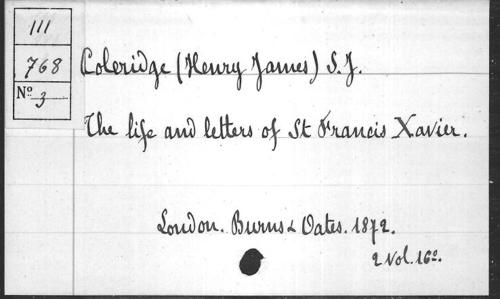 111
768
Nº 3
Coleridge (Henry James) S.J.
The life and letters of St Francis Xavier.
London. Burns & Oates. 1872.
2 Vol. 16º.